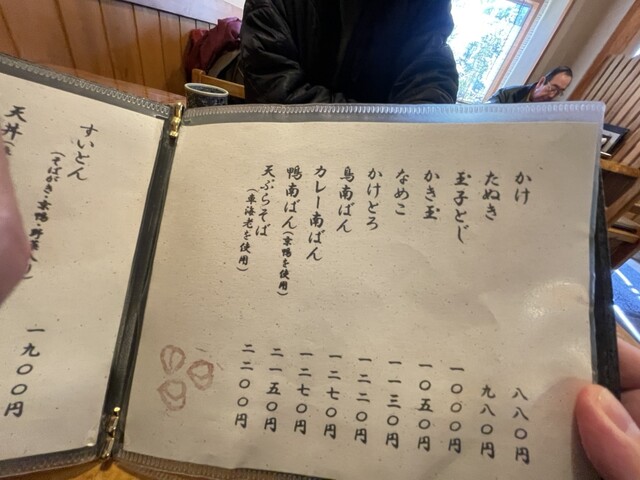 かけ 八八〇円
たぬき 九八〇円
玉子とじ 一〇〇〇円
かき玉 一〇五〇円
なめこ 一一三〇円
かけとろ 一二二〇円
鳥南ばん 一二七〇円
カレー南ばん 一二七〇円
鴨南ばん(京鴨を使用) 二一五〇円
天ぷらそば 二二〇〇円
(車海老を使用)
すいとん
(そばがき・京鴨・野菜入り) 一九〇〇円
天丼